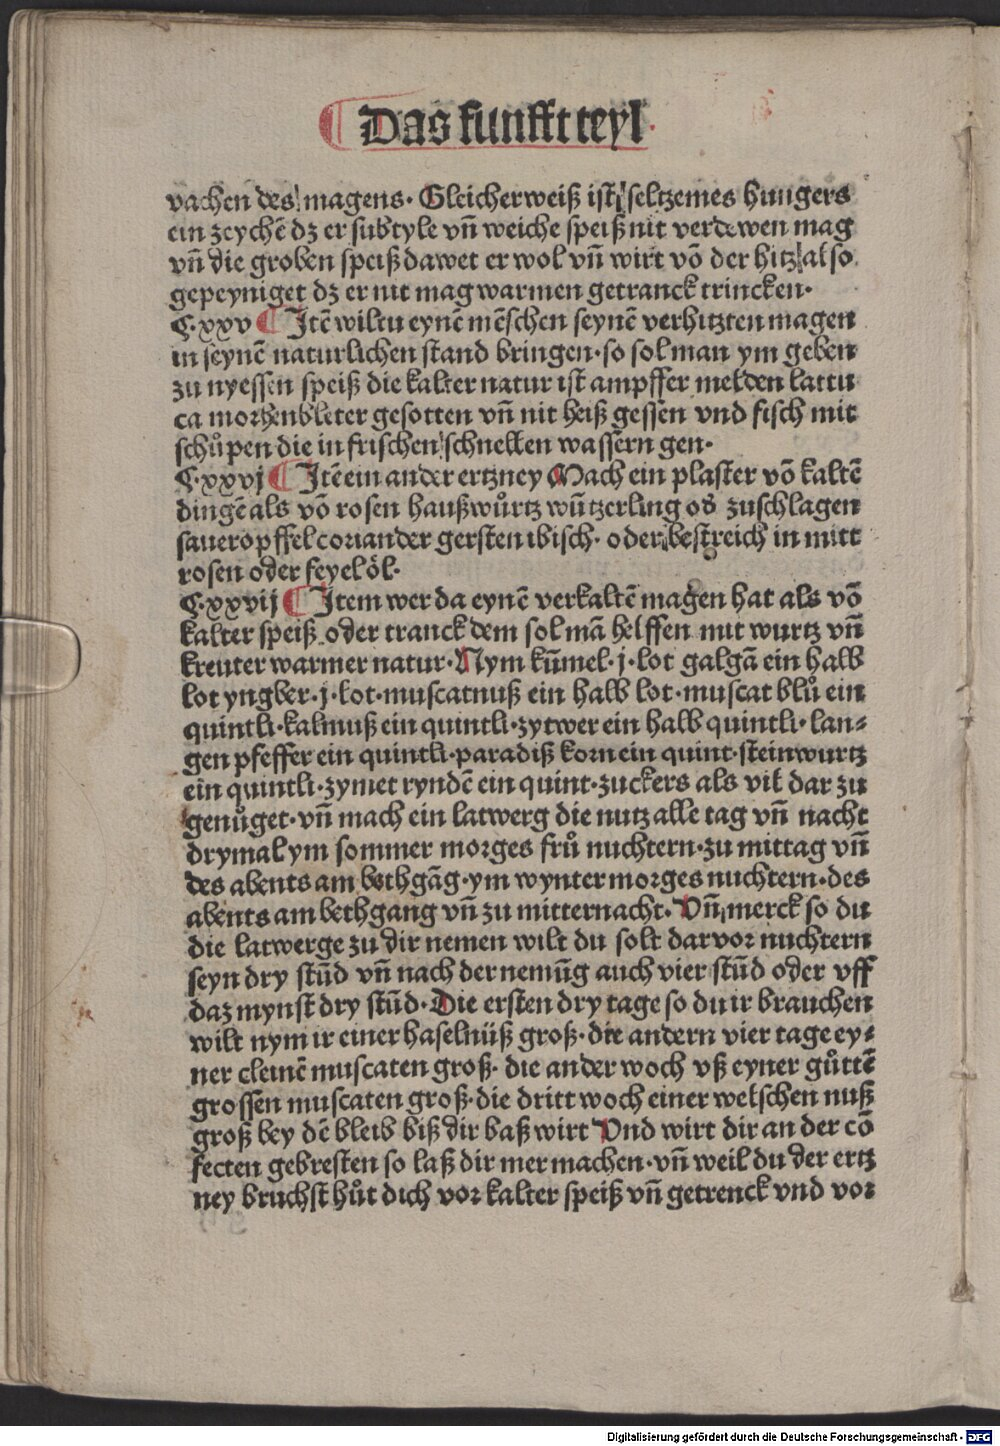 Das funfft teyl
vachen des magens· Gleicherweiß ist seltzemes hungers
ein zeychē dz er subtyle vn̄ weiche speiß nit verdewen mag
vn̄ die groben speiß dawet er wol vn̄ wirt vō der hitz also
gepeyniget dz er nit mag warmen getranck trincken·
C·xxv ¶ Itē wiltu eynē mēschen seynē verhitzten magen
in seynē naturlichen stand bringen·so sol man ym geben
zu nyessen speiß die kalter natur ist ampffer melden lattu
ca morhenbleter gesotten vn̄ nit heiß gessen vnd fisch mit
schůpen die in frischen schnellen wassern gen·
C·xxvj ¶ Itē ein ander ertzney Mach ein plaster vō kaltē
dingē als vō rosen haußwůrtz wūtzerling od zuschlagen
saueropffel coriander gersten ibisch· oder bestreich in mitt
rosen oder feyel öl·
C·xxvij ¶ Item wer da eynē verkaltē magen hat als vō
kalter speiß oder tranck dem sol mā helffen mit wurtz vn̄
kreuter warmer natur·Nym kūmel·j·lot galgā ein halb
lot yngber·j·lot·muscatnuß ein halb lot·muscat blů ein
quintli·kalmuß ein quintli·zytwer ein halb quintli·lan⸗
gen pfeffer ein quintli·paradiß korn ein quint·steinwurtz
ein quintli·zymet ryndē ein quint·zuckers als vil dar zu
genůget·vn̄ mach ein latwerg die nutz alle tag vn̄ nacht
drymal ym sommer morges frů nuchtern·zu mittag vn̄
des abents am bethgāg·ym wynter morges nuchtern·des
abents am bethgang vn̄ zu mitternacht·Vn̄ merck so du
die latwerge zu dir nemen wilt du solt darvor nuchtern
seyn dry stūd vn̄ nach der nemūg auch vier stūd oder vff
daz mynst dry stūd·Die ersten dry tage so du ir brauchen
wilt nym ir einer haselnüß groß·die andern vier tage ey⸗
ner cleinē muscaten groß· die ander woch vß eyner gůttē
grossen muscaten groß·die dritt woch einer welschen nuß
groß bey dē bleib biß dir baß wirt Vnd wirt dir an der cō
fecten gebresten so laß dir mer machen·vn̄ weil du der ertz
ney bruchst hůt dich vor kalter speiß vn̄ getrenck vnd vor
Digitalisierung gefördert durch die Deutsche Forschungsgemeinschaft - DFG